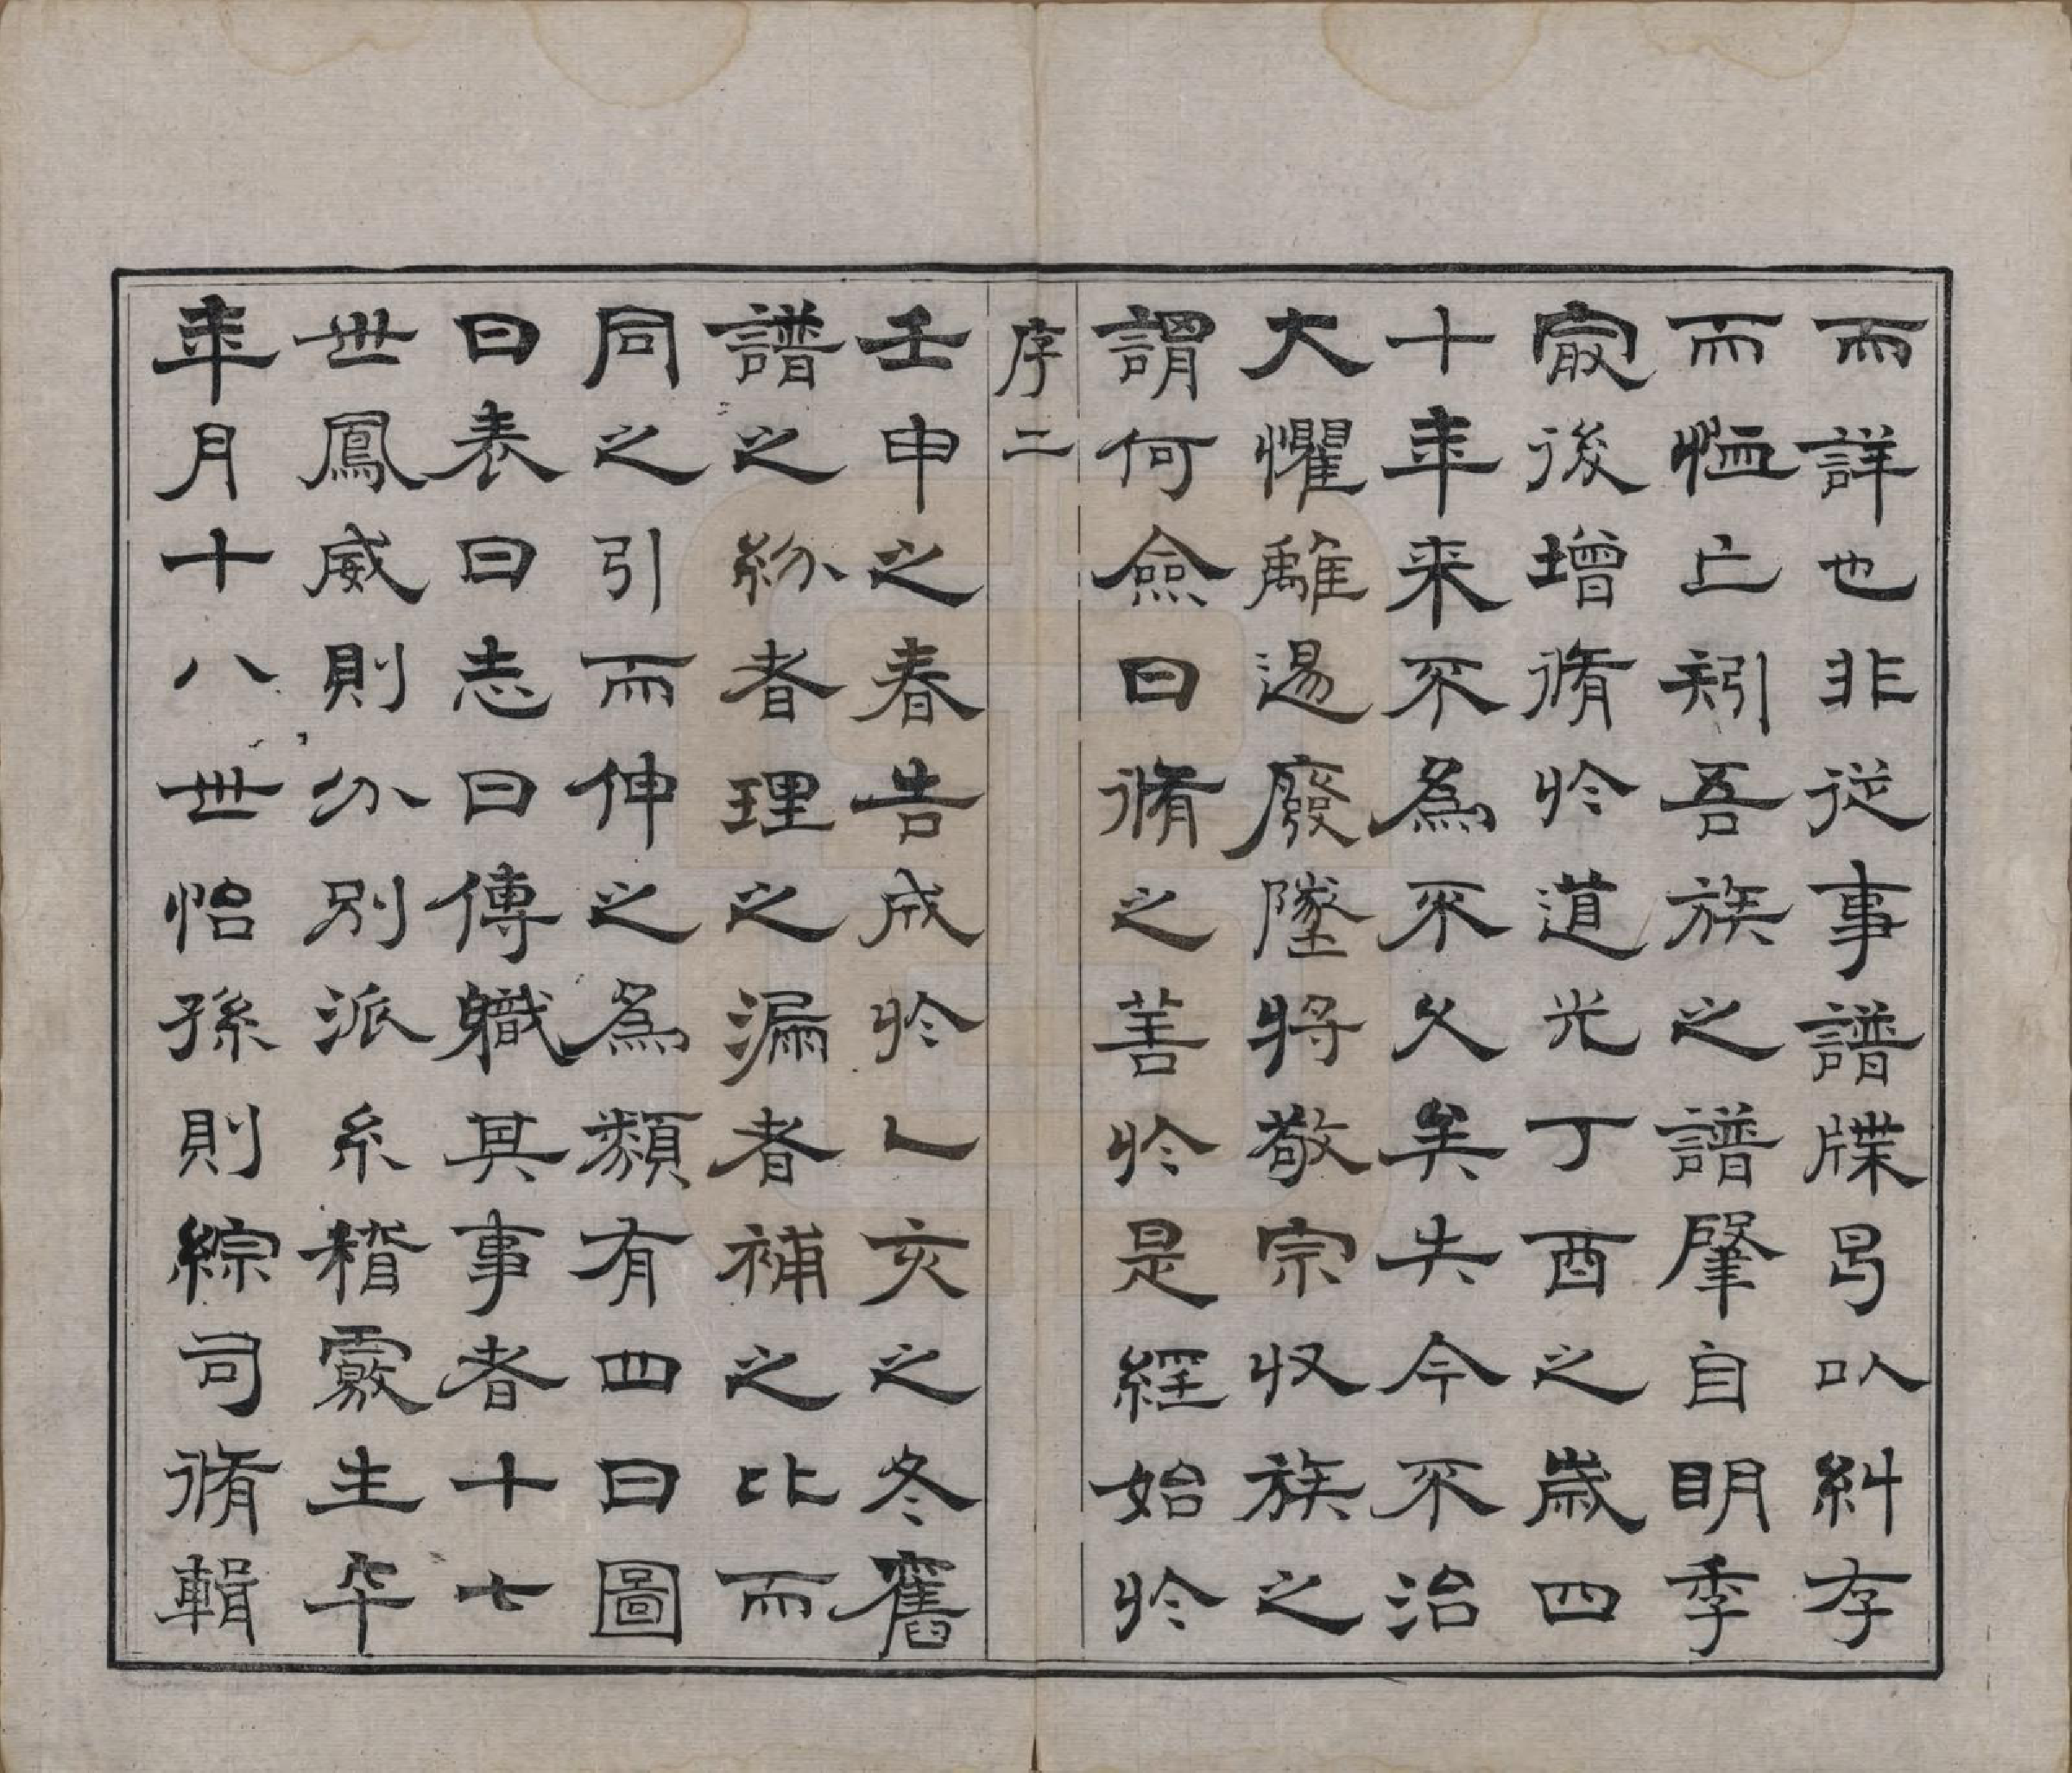 而詳也非從事譜牒曷以糾存
而恤亡矧吾族之譜肇自明季
㝡後增脩於道光丁酉之歲四
十年來不爲不久矣失今不治
大懼離逷廢墜將敬宗收族之
謂何僉曰脩之善於是經始於
序二
壬申之春告成於乚亥之冬舊
譜之紛者理之漏者補之比而
同之引而伸之爲類有四曰圖
曰表曰志曰傳職其事者十七
世鳳威則分別派系稽覈生卒
年月十八世怡孫則綜司脩輯